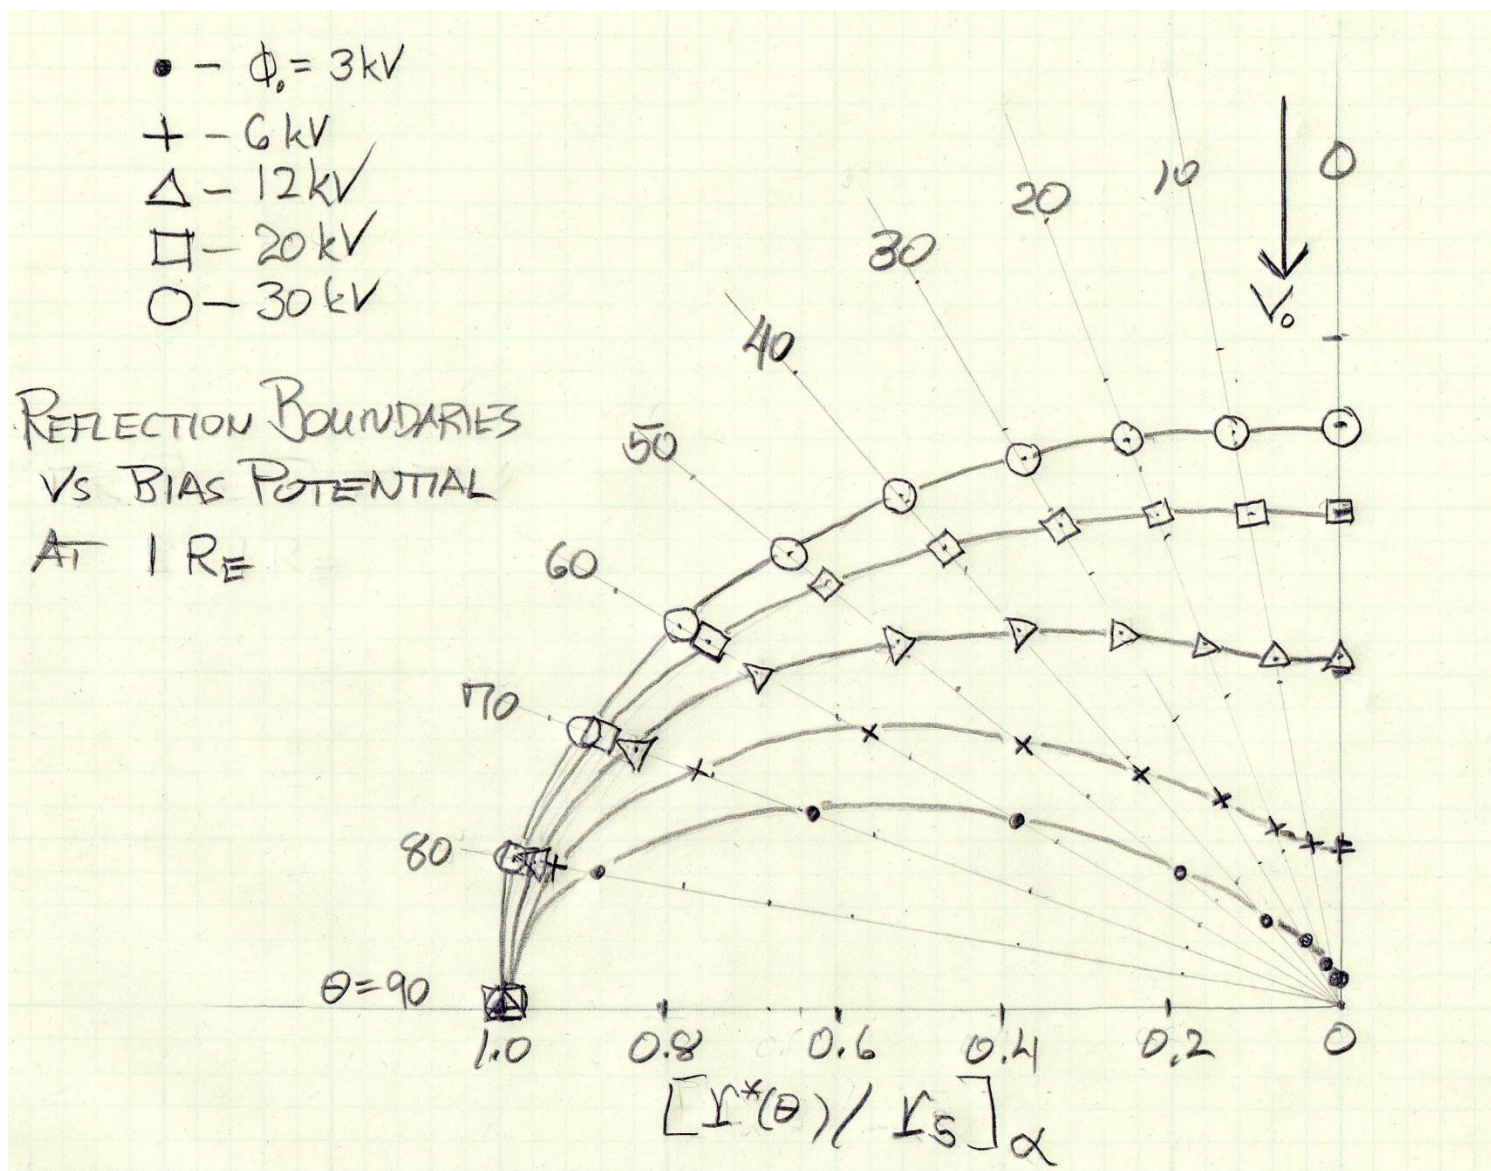 • – ϕ₀ = 3kV
+ – 6 kV
△ – 12kV
□ – 20kV
○ – 30kV
REFLECTION BOUNDARIES
VS BIAS POTENTIAL
AT 1 RE
0
10
20
30
40
50
60
70
80
V₀
θ=90
1.0 0.8 0.6 0.4 0.2 0
[r*(θ)/ rS]α